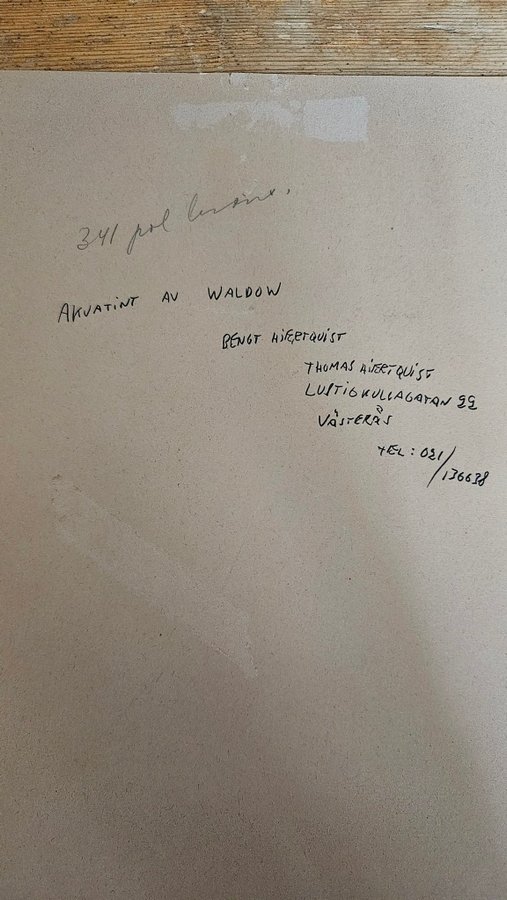 341 pol
AKVATINT AV WALDOW
BENGT HJERTQUIST
THOMAS HJERTQUIST
LUSTIGKULLAGATAN 22
VÄSTERÅS
TEL: 021/136638